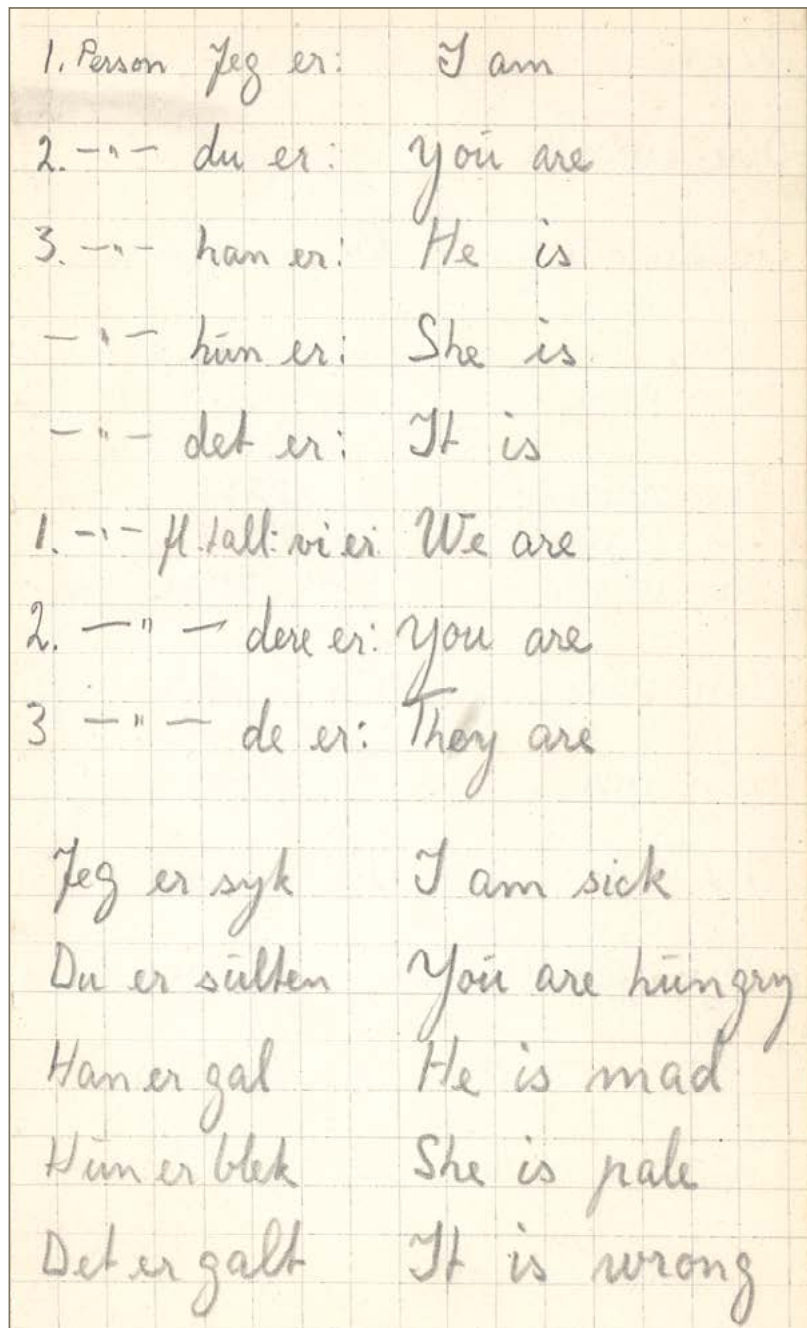 1. Person Jeg er: I am
2. —"— du er: You are
3. —"— han er: He is
—"— hun er: She is
—"— det er: It is
1. —"— fl.tall: vi er: We are
2. —"— dere er: You are
3 —"— de er: They are
Jeg er syk I am sick
Du er sulten You are hungry
Han er gal He is mad
Hun er blek She is pale
Det er galt It is wrong